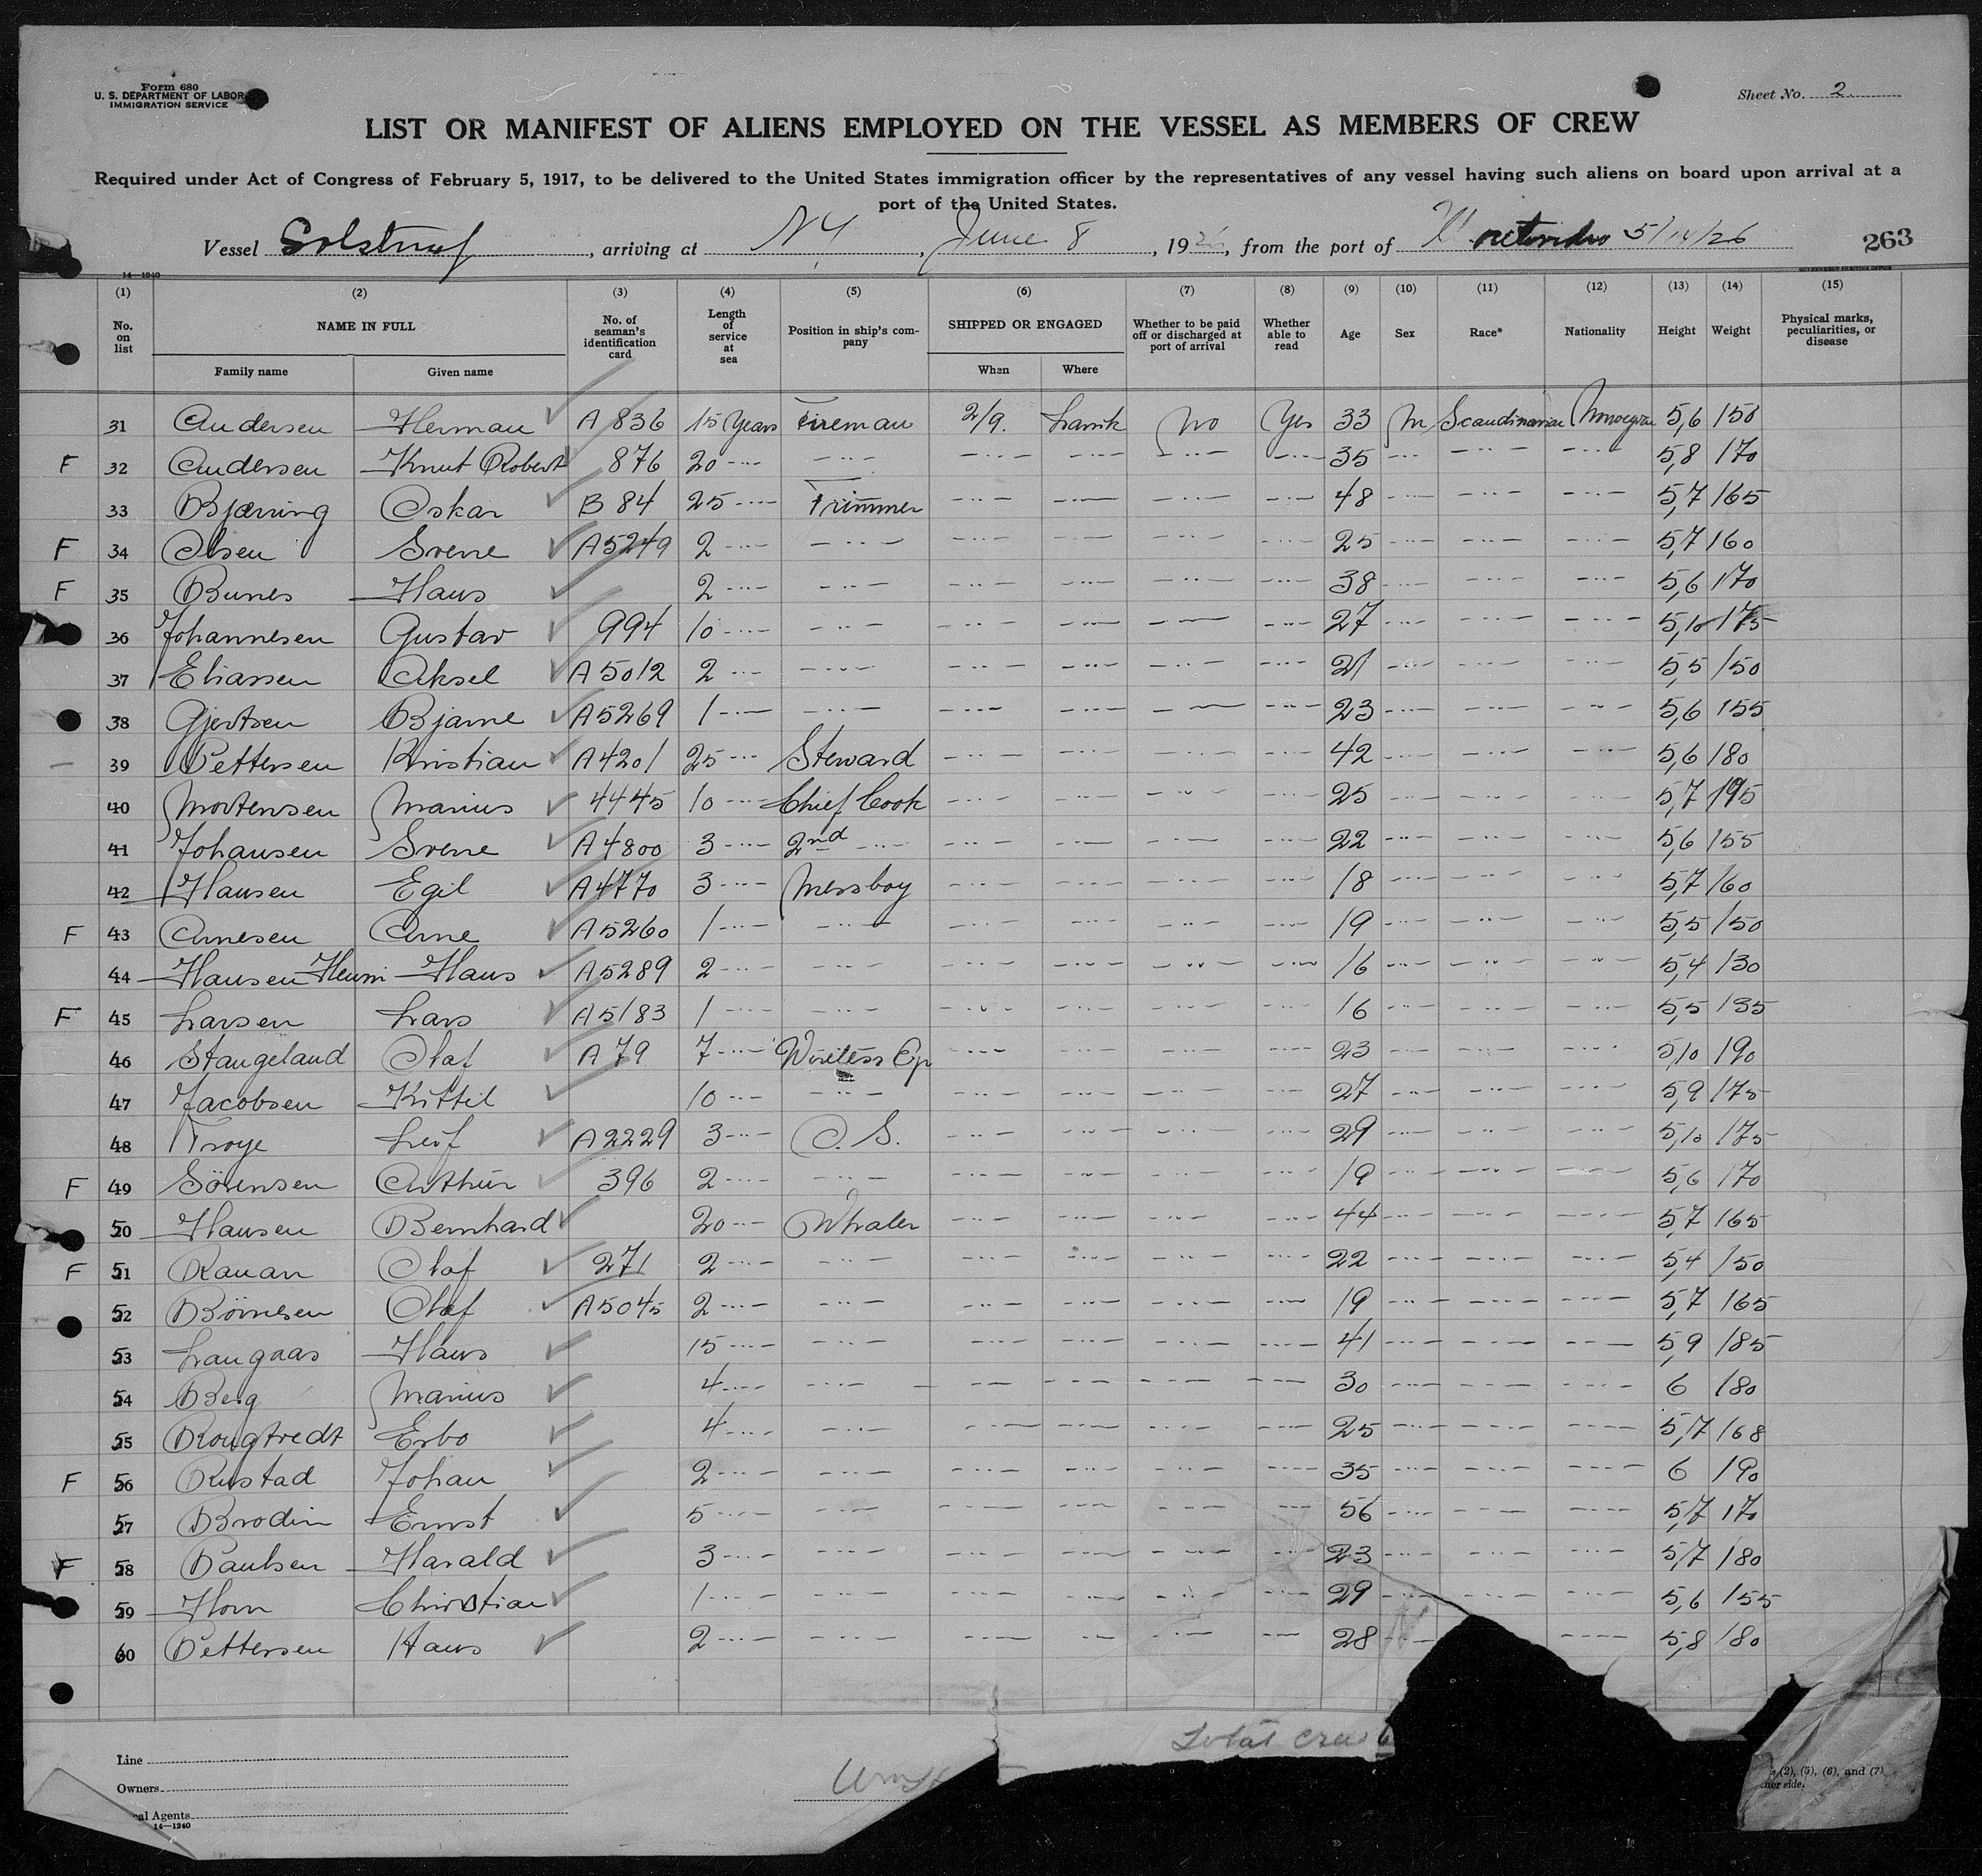 Form 680
U. S. DEPARTMENT OF LABOR
IMMIGRATION SERVICE
Sheet No. 2
LIST OR MANIFEST OF ALIENS EMPLOYED ON THE VESSEL AS MEMBERS OF CREW
Required under Act of Congress of February 5, 1917, to be delivered to the United States immigration officer by the representatives of any vessel having such aliens on board upon arrival at a
port of the United States.
Vessel Solstreif, arriving at N.Y., June 8, 1926, from the port of Montevideo 5/14/26
263
14—1240
GOVERNMENT PRINTING OFFICE
(1) (2) (3) (4) (5) (6) (7) (8) (9) (10) (11) (12) (13) (14) (15)
No. on list NAME IN FULL Family name Given name No. of seaman's identification card Length of service at sea Position in ship's company SHIPPED OR ENGAGED When Where Whether to be paid off or discharged at port of arrival Whether able to read Age Sex Race* Nationality Height Weight Physical marks, peculiarities, or disease
31 Andersen Herman A 836 15 Years Fireman 2/9. Larvik No Yes 33 M Scandinavian Norwegian 5,6 150
F 32 Andersen Knut Robert 876 20 35 5,8 170
33 Bjerning Oskar B 84 25 Trimmer 48 5,7 165
F 34 Olsen Sverre A5249 2 25 5,7 160
F 35 Bunes Hans 2 38 5,6 170
36 Johannesen Gustav 994 10 27 5,10 175
37 Eliassen Aksel A5012 2 21 5,5 150
38 Gjertsen Bjarne A5269 1 23 5,6 155
39 Pettersen Kristian A4201 25 Steward 42 5,6 180
40 Mortensen Marius 4445 10 Chief Cook 25 5,7 195
41 Johansen Sverre A4800 3 2nd 22 5,6 155
42 Hansen Egil A4770 3 Messboy 18 5,7 160
F 43 Arnesen Arne A5260 1 19 5,5 150
44 Hansen Henri Hans A5289 2 16 5,4 130
F 45 Larsen Lars A5183 1 16 5,5 135
46 Stangeland Olaf A 79 7 Wireless Op 23 5,10 190
47 Jacobsen Kittil 10 27 5,9 175
48 Troye Leif A2229 3 O. S. 29 5,10 175
F 49 Sörensen Arthur 396 2 19 5,6 170
50 Hansen Bernhard 20 Whaler 44 5,7 165
F 51 Olaf 271 2 22 5,4 150
52 Börnesen Olaf A5045 2 19 5,7 165
53 Langaas Hans 15 41 5,9 185
54 Berg Marius 4 30 6 180
55 4 25 5,7 168
F 56 Rustad Johan 2 35 6 190
57 Brodin Ernst 5 56 5,7 170
F 58 Paulsen Harald 3 23 5,7 180
59 Horn Christian 1 29 5,6 155
60 Pettersen Hans 2 28 5,8 180
Total crew
Line
Owners
cal Agents
14—1240
(2), (5), (6), and (7)
her side.